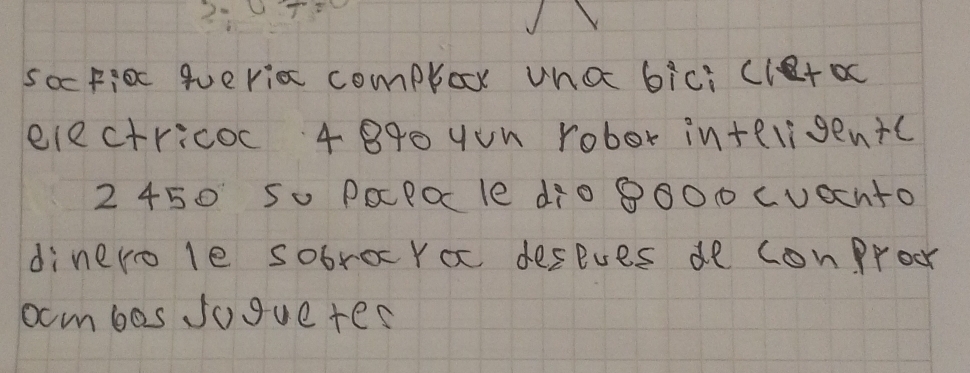 sofia queria comprar una bici cleta
electrica 4 890 y un robor inteligente
2 450 su papa le dio 8000 cuanto
dinero le sobrara despues de conprar
ambos juguetes